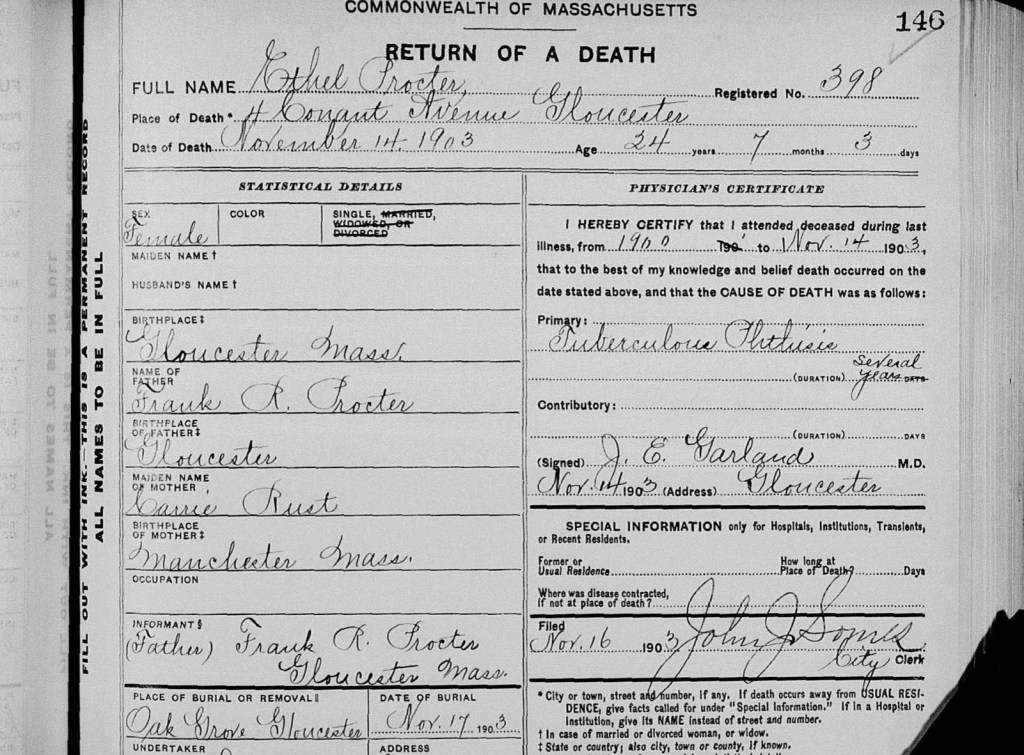 COMMONWEALTH OF MASSACHUSETTS
146
RETURN OF A DEATH
FULL NAME Ethel Procter, Registered No. 398
Place of Death* 4 Conant Avenue Gloucester
Date of Death November 14. 1903 Age 24 years 7 months 3 days
FILL OUT WITH INK.—THIS IS A PERMANENT RECORD
ALL NAMES TO BE IN FULL
STATISTICAL DETAILS
SEX COLOR SINGLE, MARRIED, WIDOWED, OR DIVORCED
Female
MAIDEN NAME †
HUSBAND'S NAME †
BIRTHPLACE ‡
Gloucester Mass.
NAME OF FATHER
Frank R. Procter
BIRTHPLACE OF FATHER ‡
Gloucester
MAIDEN NAME OF MOTHER
Carrie Rust
BIRTHPLACE OF MOTHER ‡
Manchester Mass.
OCCUPATION
INFORMANT §
(Father) Frank R. Procter
Gloucester Mass.
PLACE OF BURIAL OR REMOVAL || DATE OF BURIAL
Oak Grove Gloucester Nov. 17 1903
UNDERTAKER ADDRESS
PHYSICIAN'S CERTIFICATE
I HEREBY CERTIFY that I attended deceased during last
illness, from 1900 190 to Nov. 14 1903,
that to the best of my knowledge and belief death occurred on
the date stated above, and that the CAUSE OF DEATH was as follows:
Primary:
Tuberculous Phthisis
several
(DURATION) years DAYS
Contributory:
(DURATION) DAYS
(Signed) J. E. Garland M.D.
Nov. 14 1903 (Address) Gloucester
SPECIAL INFORMATION only for Hospitals, Institutions, Transients,
or Recent Residents.
Former or Usual Residence How long at Place of Death? Days
Where was disease contracted, if not at place of death?
Filed
Nov. 16 1903 John J Somes
City Clerk
* City or town, street and number, if any. If death occurs away from USUAL RESI-
DENCE, give facts called for under "Special Information." If in a Hospital or
Institution, give its NAME instead of street and number.
† In case of married or divorced woman, or widow.
‡ State or country; also city, town or county, if known.